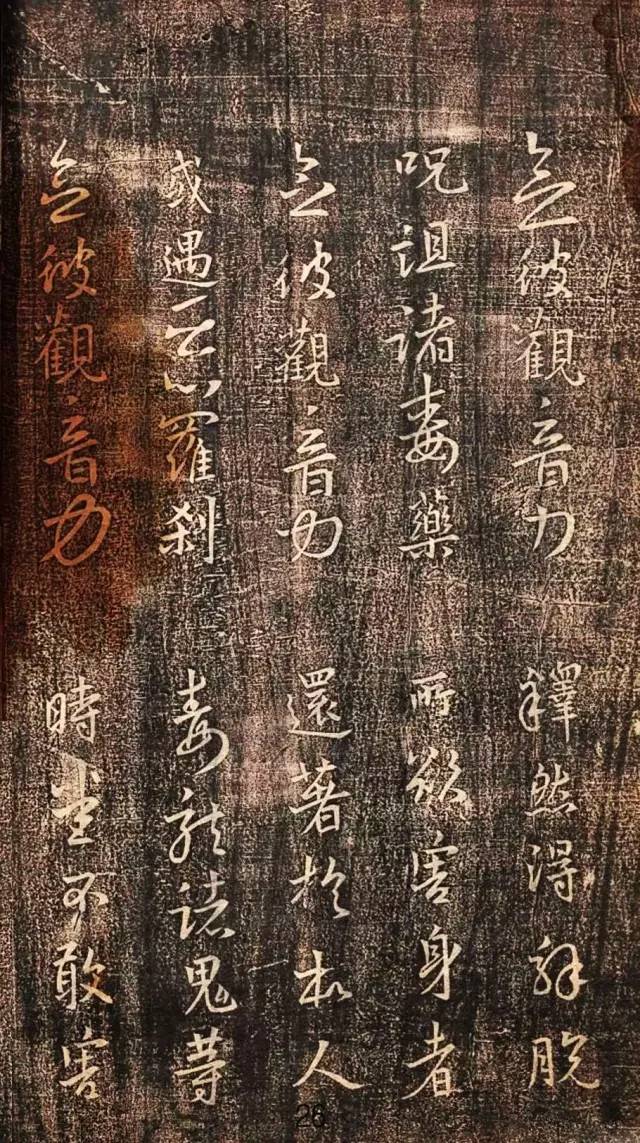 念彼觀音力 釋然得解脫
呪詛諸毒藥 所欲害身者
念彼觀音力 還著於本人
或遇惡羅剎 毒龍諸鬼等
念彼觀音力 時悉不敢害
26